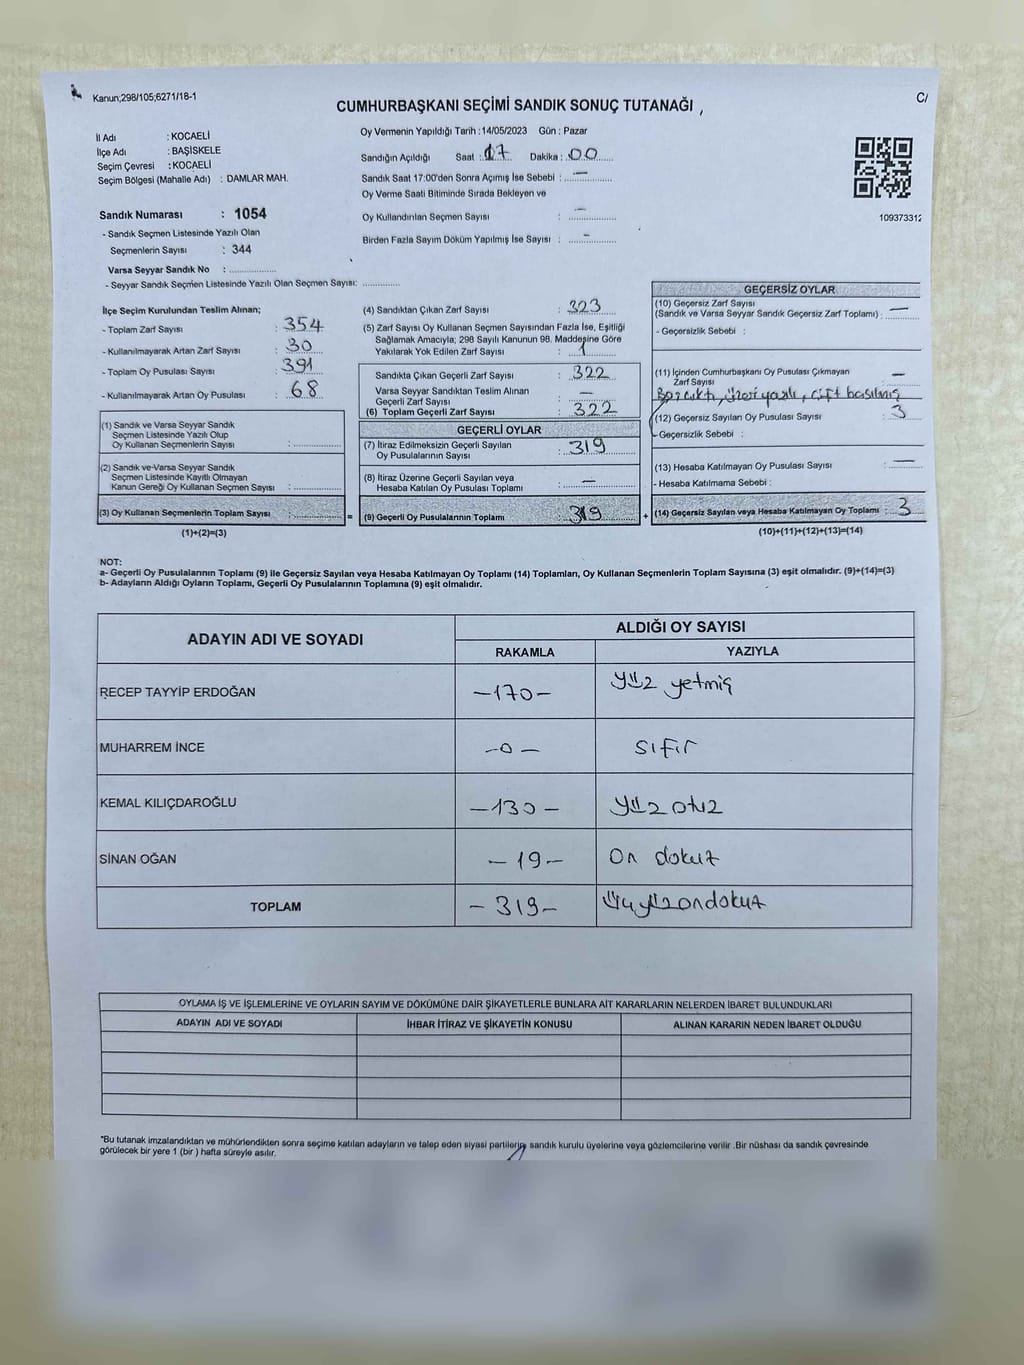 Kanun;298/105;6271/18-1
C/
CUMHURBAŞKANI SEÇİMİ SANDIK SONUÇ TUTANAĞI
İl Adı : KOCAELİ
İlçe Adı : BAŞİSKELE
Seçim Çevresi : KOCAELİ
Seçim Bölgesi (Mahalle Adı) : DAMLAR MAH.
Sandık Numarası : 1054
- Sandık Seçmen Listesinde Yazılı Olan
Seçmenlerin Sayısı : 344
Varsa Seyyar Sandık No :
- Seyyar Sandık Listesinde Yazılı Olan Seçmen Sayısı:
Oy Vermenin Yapıldığı Tarih :14/05/2023 Gün : Pazar
Sandığın Açıldığı Saat : 17 Dakika : 00
Sandık Saat 17:00'den Sonra Açımış İse Sebebi : —
Oy Verme Saati Bitiminde Sırada Bekleyen ve
Oy Kullandırılan Seçmen Sayısı : —
Birden Fazla Sayım Döküm Yapılmış İse Sayısı : -
109373312
İlçe Seçim Kurulundan Teslim Alınan;
- Toplam Zarf Sayısı : 354
- Kullanılmayarak Artan Zarf Sayısı : 30
- Toplam Oy Pusulası Sayısı : 391
- Kullanılmayarak Artan Oy Pusulası : 68
(1) Sandık ve Varsa Seyyar Sandık
Seçmen Listesinde Yazılı Olup
Oy Kullanan Seçmenlerin Sayısı :
(2) Sandık ve Varsa Seyyar Sandık
Seçmen Listesinde Kayıtlı Olmayan
Kanun Gereği Oy Kullanan Seçmen Sayısı :
(3) Oy Kullanan Seçmenlerin Toplam Sayısı :
(1)+(2)=(3)
=
(4) Sandıktan Çıkan Zarf Sayısı : 323
(5) Zarf Sayısı Oy Kullanan Seçmen Sayısından Fazla İse, Eşitliği
Sağlamak Amacıyla; 298 Sayılı Kanunun 98. Maddesine Göre
Yakılarak Yok Edilen Zarf Sayısı : 1
Sandıkta Çıkan Geçerli Zarf Sayısı : 322
Varsa Seyyar Sandıktan Teslim Alınan
Geçerli Zarf Sayısı : —
(6) Toplam Geçerli Zarf Sayısı : 322
GEÇERLİ OYLAR
(7) İtiraz Edilmeksizin Geçerli Sayılan
Oy Pusulalarının Sayısı : 319
(8) İtiraz Üzerine Geçerli Sayılan veya
Hesaba Katılan Oy Pusulası Toplamı : —
(9) Geçerli Oy Pusulalarının Toplamı : 319
+
GEÇERSİZ OYLAR
(10) Geçersiz Zarf Sayısı
(Sandık ve Varsa Seyyar Sandık Geçersiz Zarf Toplamı) : —
- Geçersizlik Sebebi :
(11) İçinden Cumhurbaşkanı Oy Pusulası Çıkmayan
Zarf Sayısı —
üzeri yazılı, çift basılmış
(12) Geçersiz Sayılan Oy Pusulası Sayısı : 3
- Geçersizlik Sebebi :
(13) Hesaba Katılmayan Oy Pusulası Sayısı : —
- Hesaba Katılmama Sebebi :
(14) Geçersiz Sayılan veya Hesaba Katılmayan Oy Toplamı : 3
(10)+(11)+(12)+(13)=(14)
NOT:
a- Geçerli Oy Pusulalarının Toplamı (9) ile Geçersiz Sayılan veya Hesaba Katılmayan Oy Toplamı (14) Toplamları, Oy Kullanan Seçmenlerin Toplam Sayısına (3) eşit olmalıdır. (9)+(14)=(3)
b- Adayların Aldığı Oyların Toplamı, Geçerli Oy Pusulalarının Toplamına (9) eşit olmalıdır.
ADAYIN ADI VE SOYADI
ALDIĞI OY SAYISI
RAKAMLA YAZIYLA
RECEP TAYYİP ERDOĞAN -170- yüz yetmiş
MUHARREM İNCE -0- sıfır
KEMAL KILIÇDAROĞLU -130- yüz otuz
SİNAN OĞAN -19- On dokuz
TOPLAM -319- üçyüzondokuz
OYLAMA İŞ VE İŞLEMLERİNE VE OYLARIN SAYIM VE DÖKÜMÜNE DAİR ŞİKAYETLERLE BUNLARA AİT KARARLARIN NELERDEN İBARET BULUNDUKLARI
ADAYIN ADI VE SOYADI İHBAR İTİRAZ VE ŞİKAYETİN KONUSU ALINAN KARARIN NEDEN İBARET OLDUĞU
"Bu tutanak imzalandıktan ve mühürlendikten sonra seçime katılan adayların ve talep eden siyasi partilerin sandık kurulu üyelerine veya gözlemcilerine verilir .Bir nüshası da sandık çevresinde
görülecek bir yere 1 (bir ) hafta süreyle asılır.